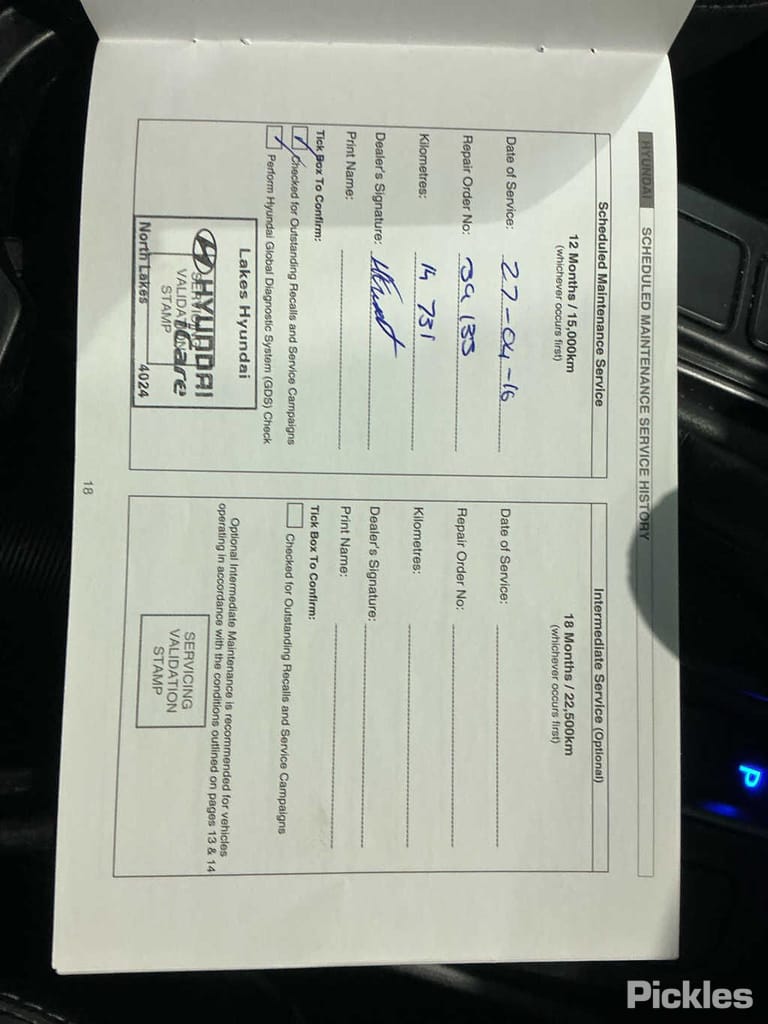 HYUNDAI SCHEDULED MAINTENANCE SERVICE HISTORY
Scheduled Maintenance Service
12 Months / 15,000km
(whichever occurs first)
Date of Service: 27-04-16
Repair Order No: 39133
Kilometres: 14 731
Dealer's Signature:
Print Name:
Tick Box To Confirm:
Checked for Outstanding Recalls and Service Campaigns
Perform Hyundai Global Diagnostic System (GDS) Check
Lakes Hyundai
HYUNDAI
iCare
SERVICING
VALIDATION
STAMP
North Lakes 4024
Intermediate Service (Optional)
18 Months / 22,500km
(whichever occurs first)
Date of Service:
Repair Order No:
Kilometres:
Dealer's Signature:
Print Name:
Tick Box To Confirm:
Checked for Outstanding Recalls and Service Campaigns
Optional Intermediate Maintenance is recommended for vehicles
operating in accordance with the conditions outlined on pages 13 & 14
SERVICING
VALIDATION
STAMP
18
P
Pickles